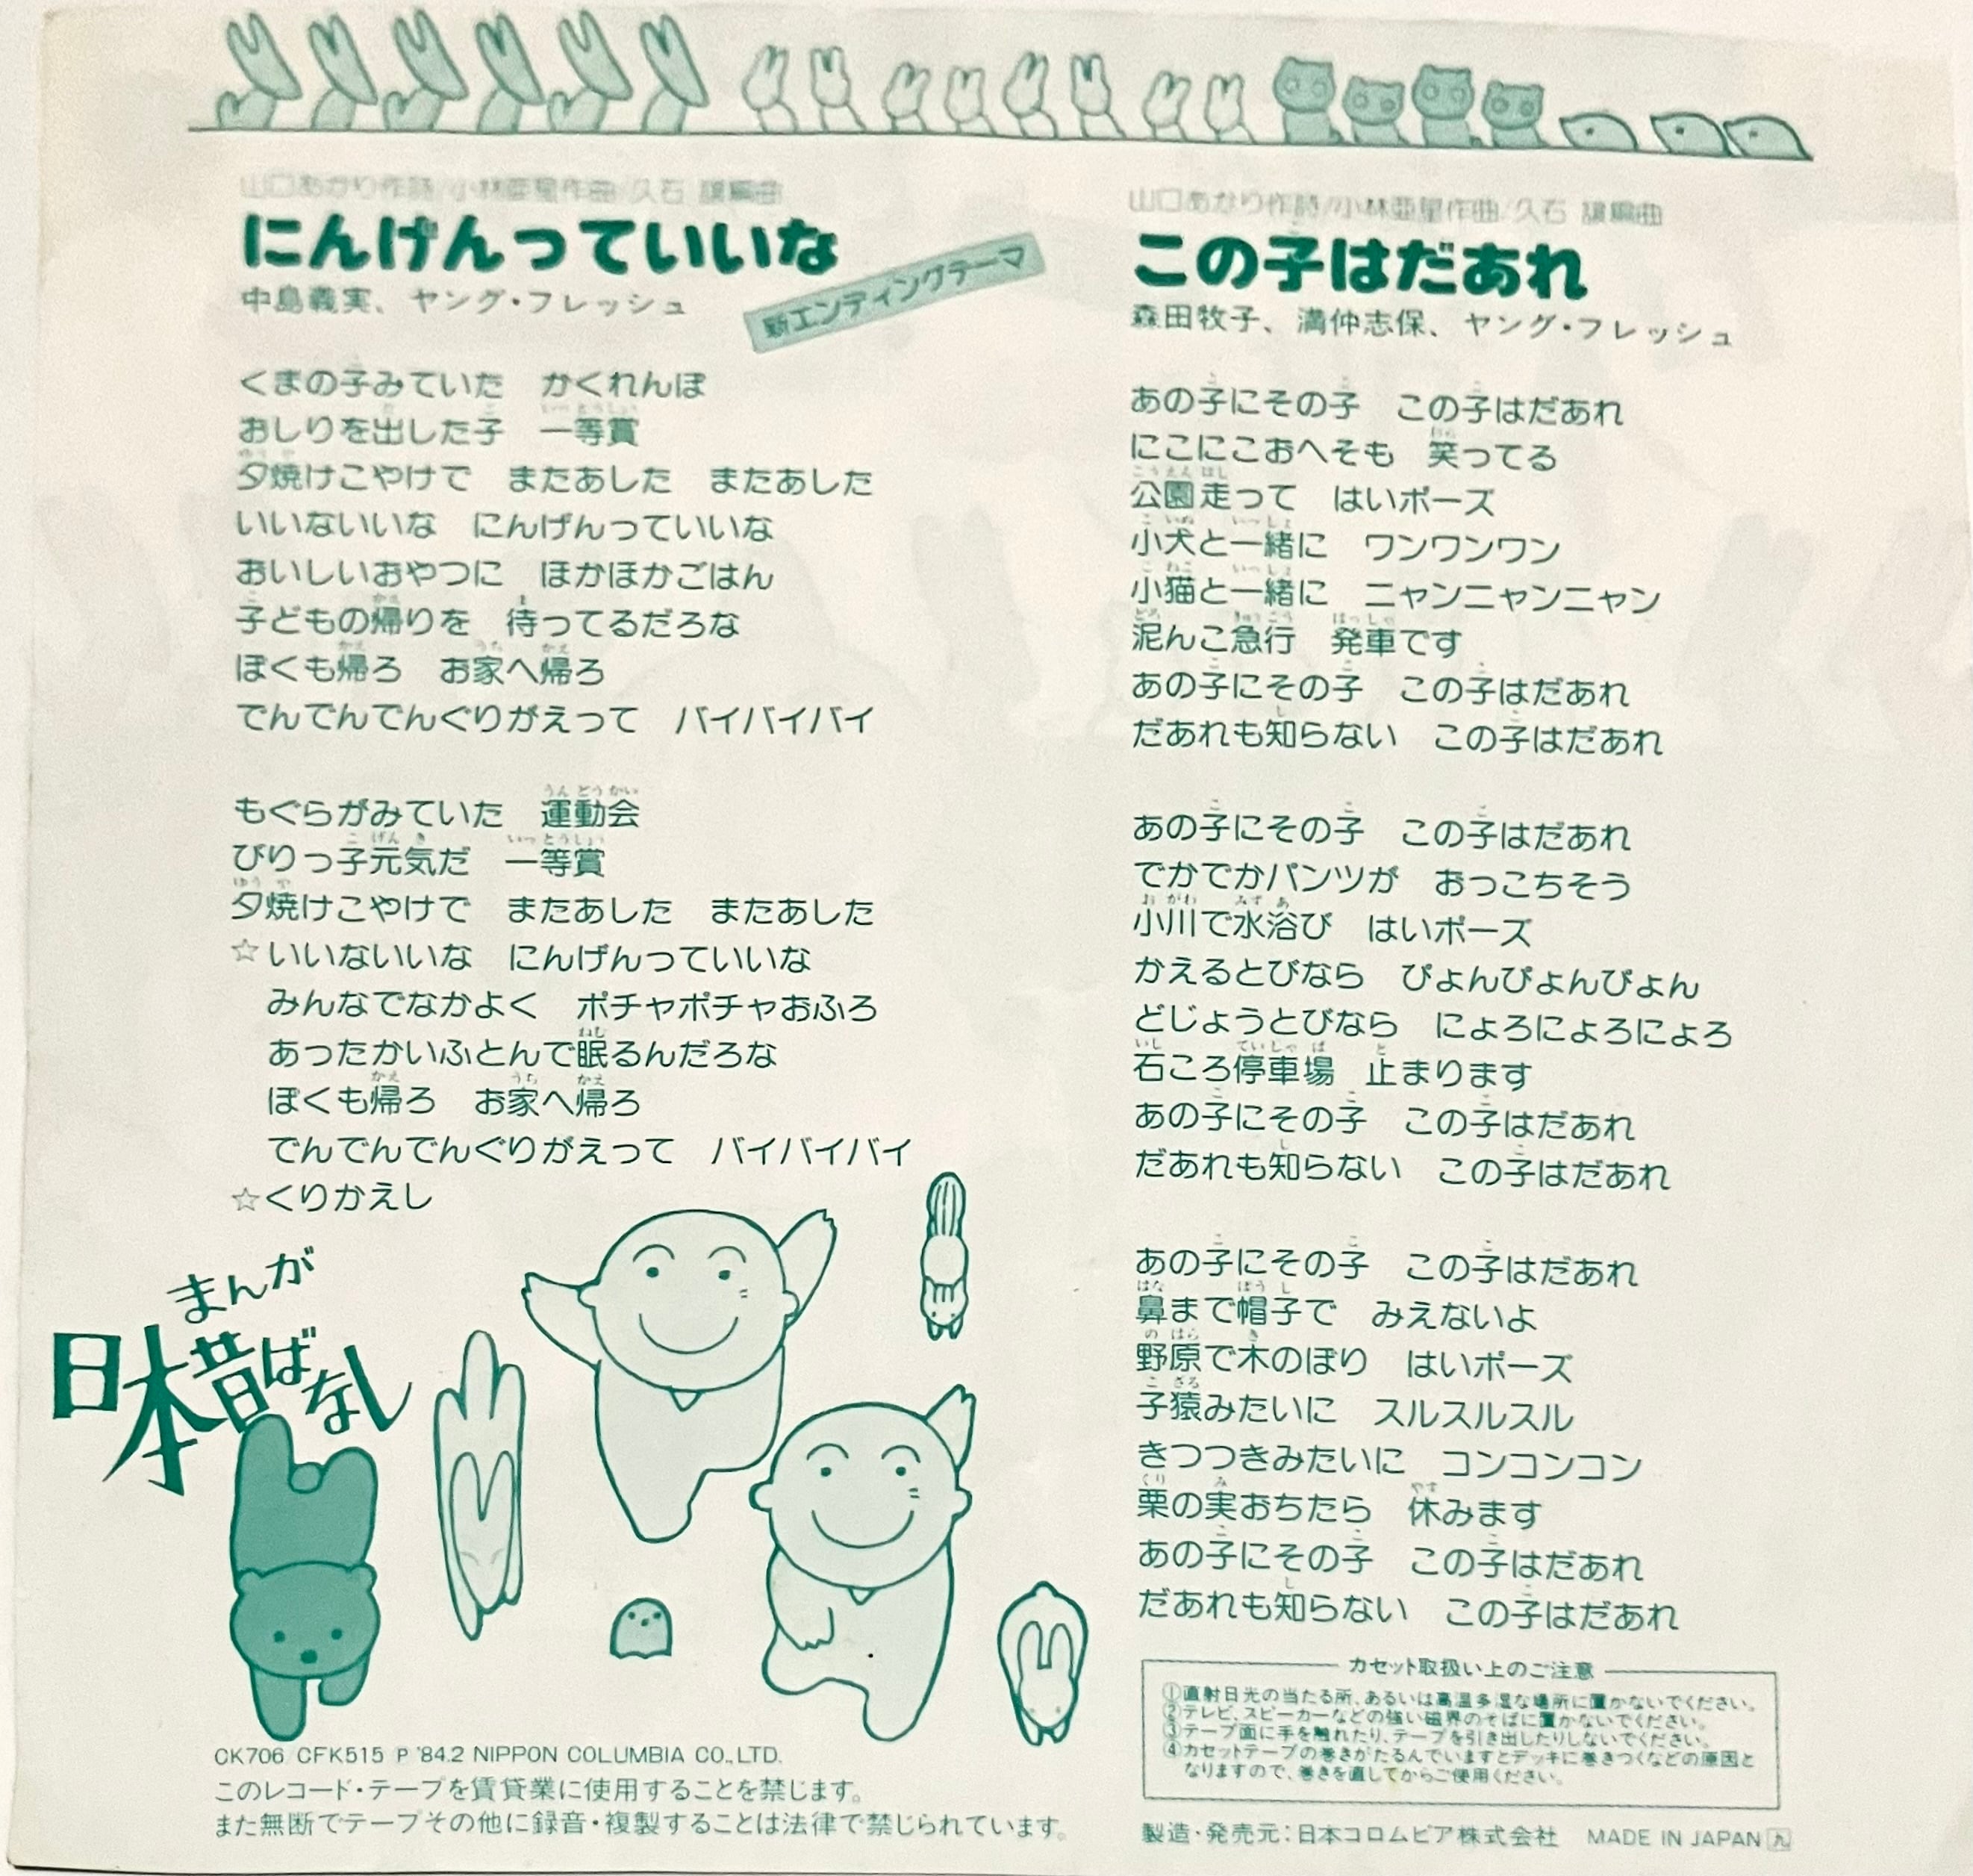 山口あかり作詩/小林亜星作曲/久石 譲編曲
にんげんっていいな
中島義実、ヤング・フレッシュ
新エンディングテーマ
くまの子みていた　かくれんぼ
おしりを出した子　一等賞
夕焼けこやけで　またあした　またあした
いいないいな　にんげんっていいな
おいしいおやつに　ほかほかごはん
子どもの帰りを　待ってるだろな
ぼくも帰ろ　お家へ帰ろ
でんでんでんぐりがえって　バイバイバイ
もぐらがみていた　運動会
びりっ子元気だ　一等賞
夕焼けこやけで　またあした　またあした
☆いいないいな　にんげんっていいな
みんなでなかよく　ポチャポチャおふろ
あったかいふとんで眠るんだろな
ぼくも帰ろ　お家へ帰ろ
でんでんでんぐりがえって　バイバイバイ
☆くりかえし
まんが
日本昔ばなし
CK706 CFK515 Ⓟ '84.2 NIPPON COLUMBIA CO.,LTD.
このレコード・テープを賃貸業に使用することを禁じます。
また無断でテープその他に録音・複製することは法律で禁じられています。
山口あかり作詩/小林亜星作曲/久石 譲編曲
この子はだあれ
森田牧子、満仲志保、ヤング・フレッシュ
あの子にその子　この子はだあれ
にこにこおへそも　笑ってる
公園走って　はいポーズ
小犬と一緒に　ワンワンワン
小猫と一緒に　ニャンニャンニャン
泥んこ急行　発車です
あの子にその子　この子はだあれ
だあれも知らない　この子はだあれ
あの子にその子　この子はだあれ
でかでかパンツが　おっこちそう
小川で水浴び　はいポーズ
かえるとびなら　ぴょんぴょんぴょん
どじょうとびなら　にょろにょろにょろ
石ころ停車場　止まります
あの子にその子　この子はだあれ
だあれも知らない　この子はだあれ
あの子にその子　この子はだあれ
鼻まで帽子で　みえないよ
野原で木のぼり　はいポーズ
子猿みたいに　スルスルスル
きつつきみたいに　コンコンコン
栗の実おちたら　休みます
あの子にその子　この子はだあれ
だあれも知らない　この子はだあれ
カセット取扱い上のご注意
①直射日光の当たる所、あるいは高温多湿な場所に置かないでください。
②テレビ、スピーカーなどの強い磁界のそばに置かないでください。
③テープ面に手を触れたり、テープを引き出したりしないでください。
④カセットテープの巻きがたるんでいますとデッキに巻きつくなどの原因と
なりますので、巻きを直してからご使用ください。
製造・発売元：日本コロムビア株式会社　MADE IN JAPAN 九